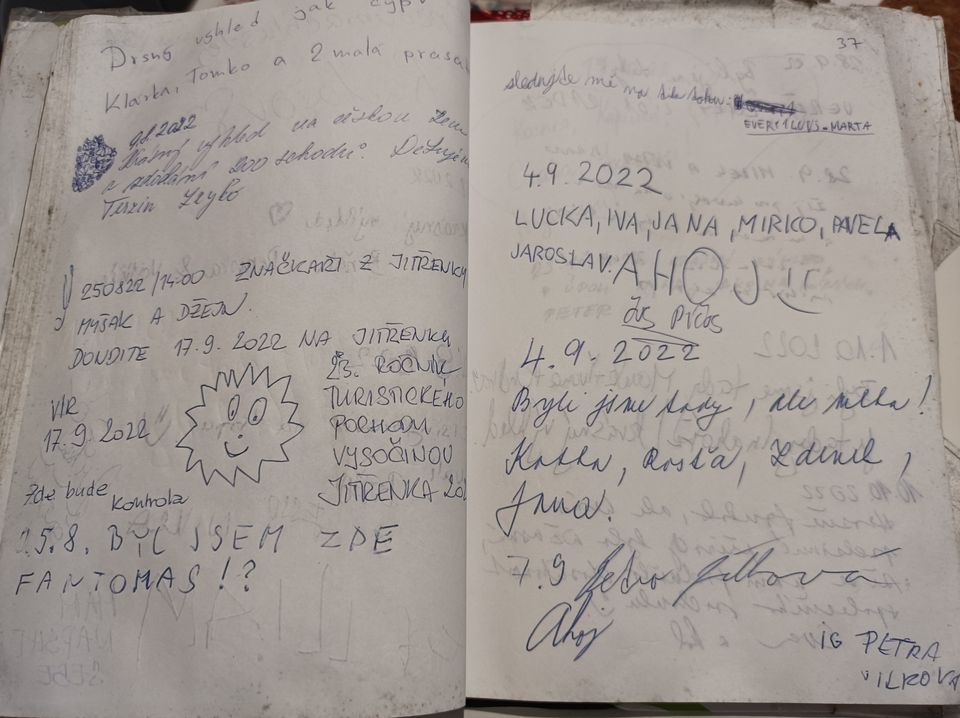 Drsný výhled jak cyp
Klárka, Tomko a 2 malá prasa
9.8.2022
výhled na českou zem
a zdolání 200 schodů. Děkujem
250822/14:00 ZNAČKAŘI Z JITŘENKY
MYŠÁK A DŽEJN.
DONDITE 17.9.2022 NA JITŘENKU
23. ROČNÍK
TURISTICKÉHO
POCHODU
VYSOČINOU
JITŘENKA 202
VÍR
17.9.2022
Zde bude kontrola
25.8. BYL JSEM ZDE
FANTOMAS!?
37
sledujte mě na tik toku:
EVERYLUVS_MARTA
4.9.2022
LUCKA, IVA, JANA, MIRKO, PAVELA
JAROSLAV. AHOJ :)
4.9.2022
Byli jsme tady, ale mlha!
Katka, Rosťa, Zdeněk,
Jana.
7.9
Ahoj
IG PETRA
VILKOVA